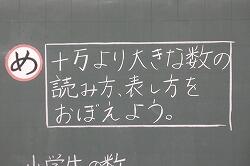 め
十万より大きな数の
読み方、表し方を
おぼえよう。
小学生の数